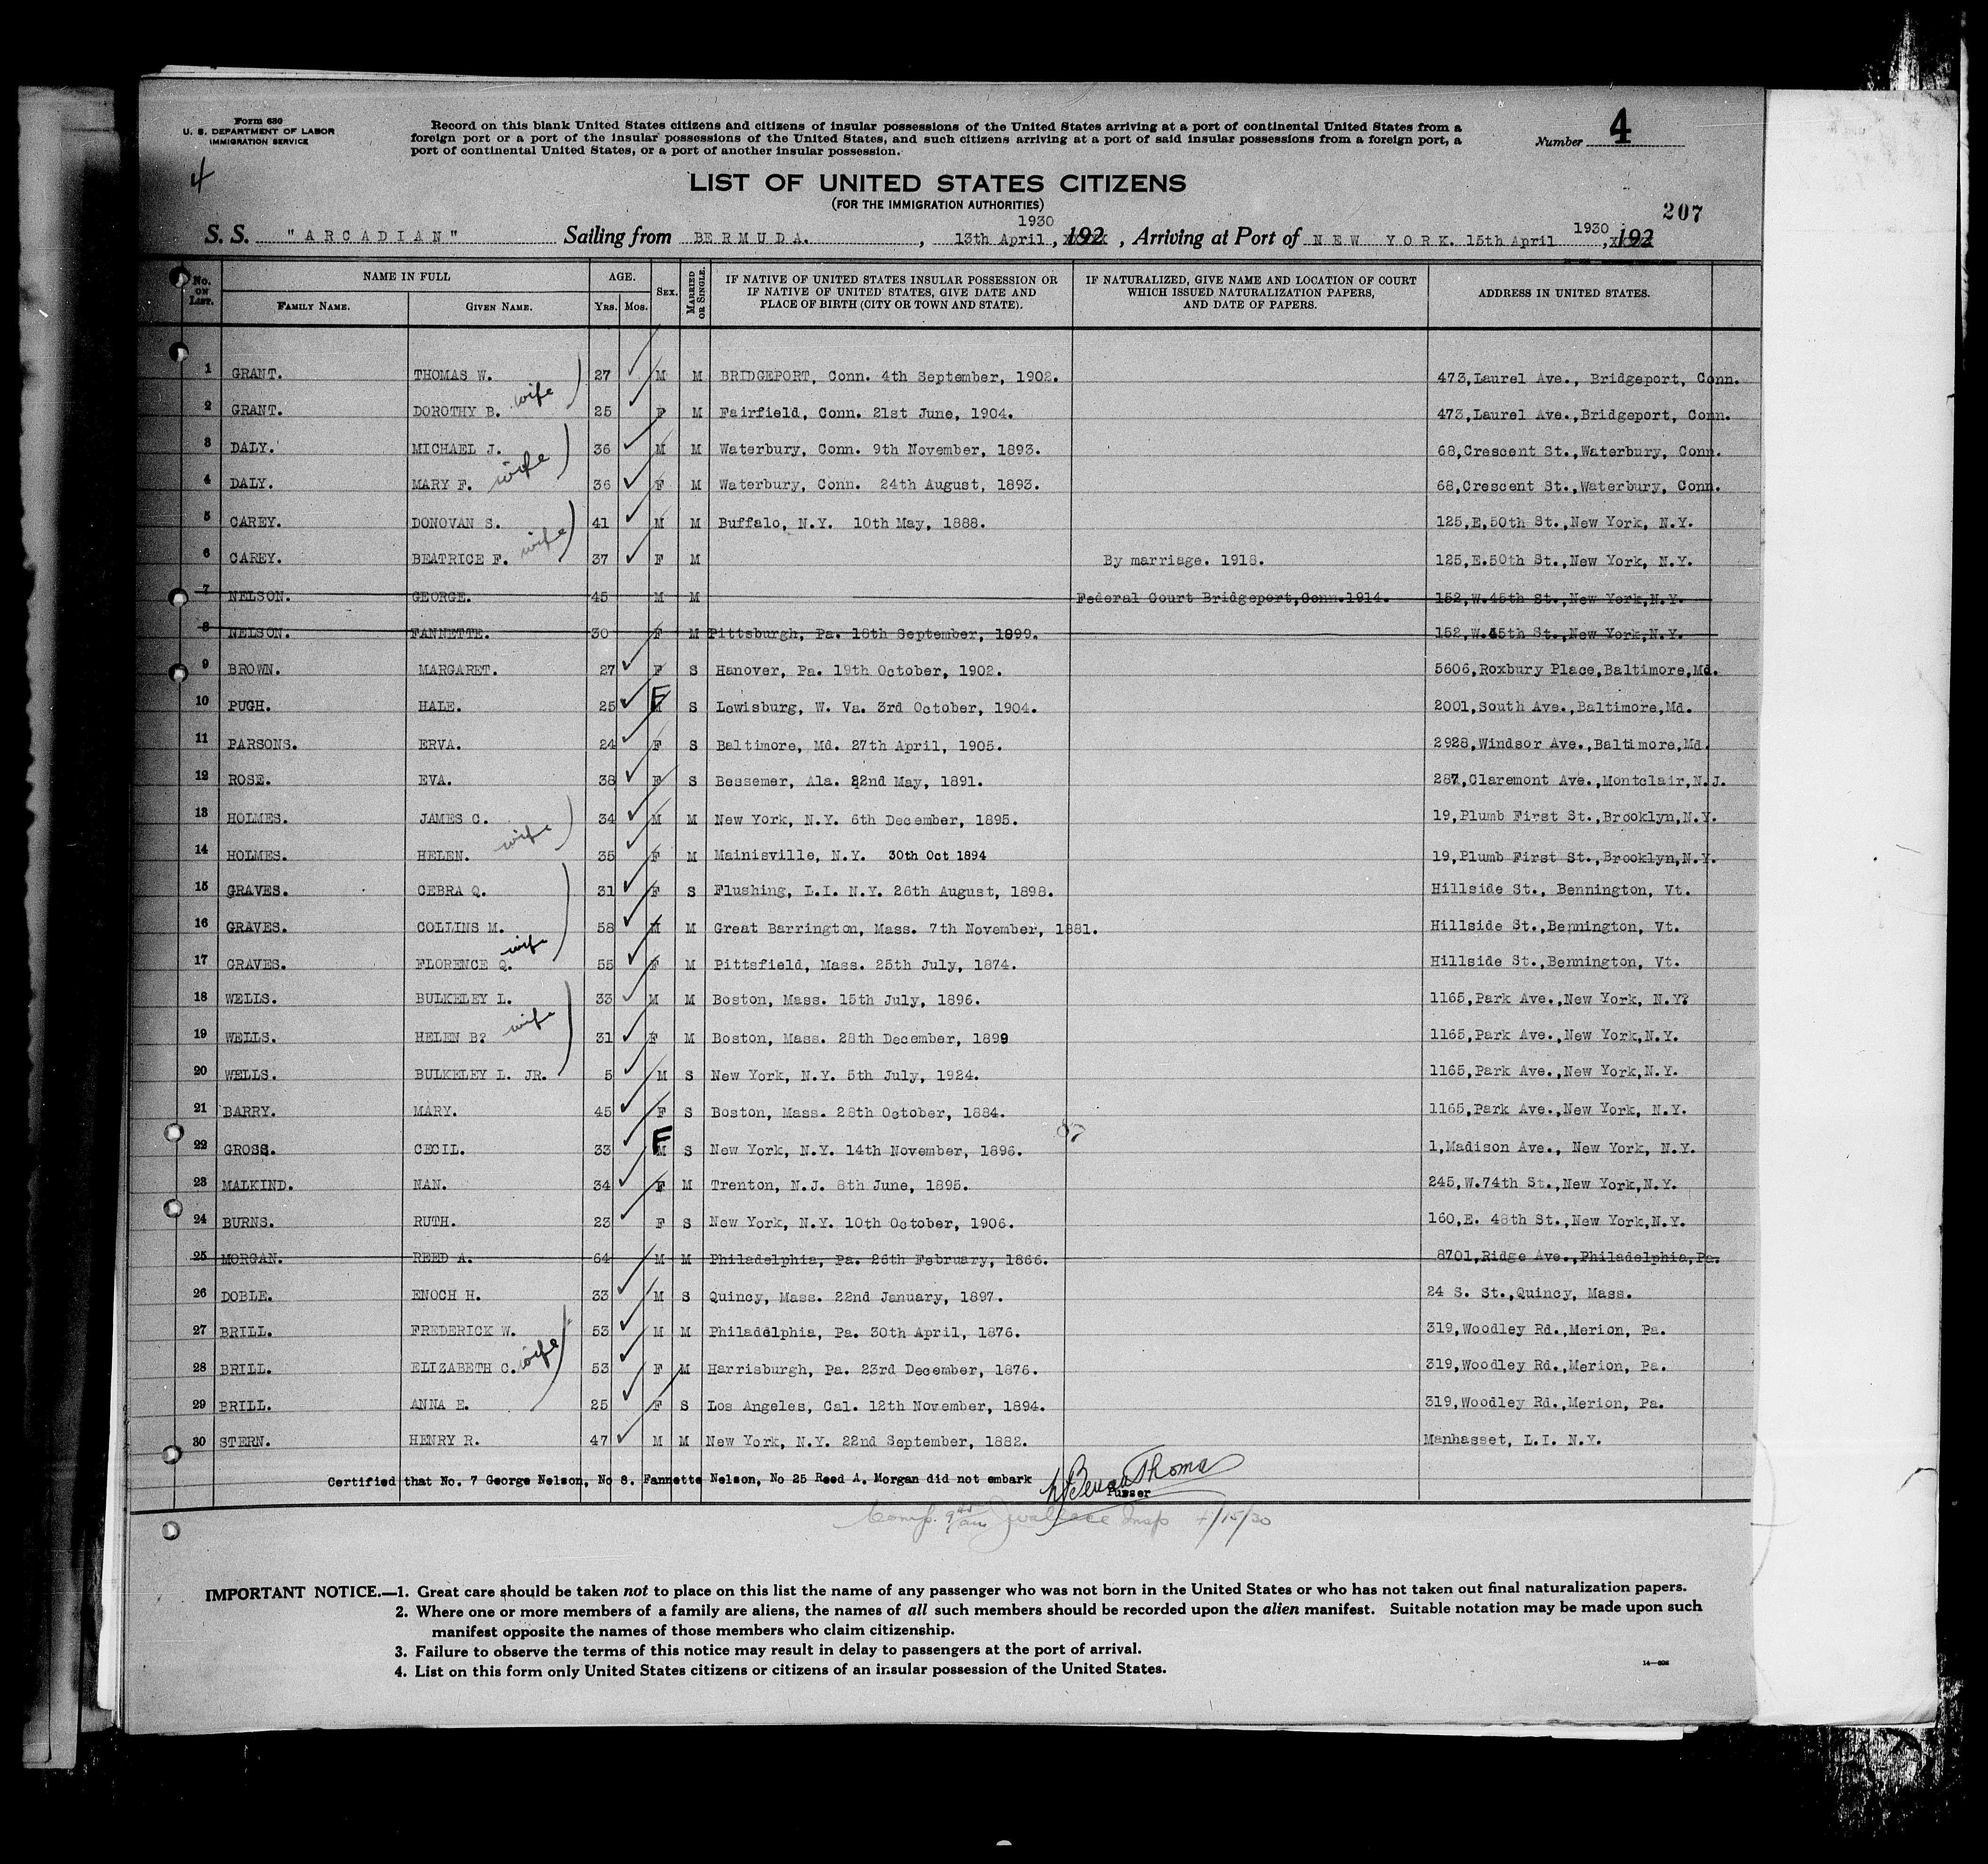 Form 630
U. S. DEPARTMENT OF LABOR
IMMIGRATION SERVICE
4
Record on this blank United States citizens and citizens of insular possessions of the United States arriving at a port of continental United States from a
foreign port or a port of the insular possessions of the United States, and such citizens arriving at a port of said insular possessions from a foreign port, a
port of continental United States, or a port of another insular possession.
Number 4
LIST OF UNITED STATES CITIZENS
(FOR THE IMMIGRATION AUTHORITIES)
207
S. S. "ARCADIAN" Sailing from BERMUDA. , 13th April 1930, 192 , Arriving at Port of NEW YORK. 15th April 1930, 192
No. ON LIST. NAME IN FULL FAMILY NAME. GIVEN NAME. AGE. Yrs. Mos. SEX. MARRIED OR SINGLE. IF NATIVE OF UNITED STATES INSULAR POSSESSION OR IF NATIVE OF UNITED STATES, GIVE DATE AND PLACE OF BIRTH (CITY OR TOWN AND STATE). IF NATURALIZED, GIVE NAME AND LOCATION OF COURT WHICH ISSUED NATURALIZATION PAPERS, AND DATE OF PAPERS. ADDRESS IN UNITED STATES.
1 GRANT. THOMAS W. 27 M M BRIDGEPORT, Conn. 4th September, 1902. 473,Laurel Ave., Bridgeport, Conn.
2 GRANT. DOROTHY B. wife 25 F M Fairfield, Conn. 21st June, 1904. 473,Laurel Ave.,Bridgeport, Conn.
3 DALY. MICHAEL J. 36 M M Waterbury, Conn. 9th November, 1893. 68,Crescent St.,Waterbury, Conn.
4 DALY. MARY F. wife 36 F M Waterbury, Conn. 24th August, 1893. 68,Crescent St.,Waterbury, Conn.
5 CAREY. DONOVAN S. 41 M M Buffalo, N.Y. 10th May, 1888. 125,E,50th St.,New York, N.Y.
6 CAREY. BEATRICE F. wife 37 F M By marriage. 1918. 125,E.50th St.,New York, N.Y.
7 NELSON. GEORGE. 45 M M Federal Court Bridgeport,Conn.1914. 152,W.45th St.,New York,N.Y.
8 NELSON. FANNETTE. 30 F M Pittsburgh, Pa. 18th September, 1899. 152,W.45th St.,New York,N.Y.
9 BROWN. MARGARET. 27 F S Hanover, Pa. 19th October, 1902. 5606,Roxbury Place,Baltimore,Md.
10 PUGH. HALE. 25 F S Lewisburg, W. Va. 3rd October, 1904. 2001,South Ave.,Baltimore,Md.
11 PARSONS. ERVA. 24 F S Baltimore, Md. 27th April, 1905. 2928,Windsor Ave.,Baltimore,Md.
12 ROSE. EVA. 38 F S Bessemer, Ala. 22nd May, 1891. 287,Claremont Ave.,Montclair,N.J.
13 HOLMES. JAMES C. 34 M M New York, N.Y. 6th December, 1895. 19,Plumb First St.,Brooklyn,N.Y.
14 HOLMES. HELEN. wife 35 F M Mainisville, N.Y. 30th Oct 1894 19,Plumb First St.,Brooklyn,N.Y.
15 GRAVES. CEBRA Q. 31 F S Flushing, L.I. N.Y. 26th August, 1898. Hillside St., Bennington, Vt.
16 GRAVES. COLLINS M. 58 M M Great Barrington, Mass. 7th November, 1881. Hillside St.,Bennington, Vt.
17 GRAVES. FLORENCE Q. wife 55 F M Pittsfield, Mass. 25th July, 1874. Hillside St.,Bennington, Vt.
18 WELLS. BULKELEY L. 33 M M Boston, Mass. 15th July, 1896. 1165,Park Ave.,New York, N.Y?
19 WELLS. HELEN B? wife 31 F M Boston, Mass. 28th December, 1899 1165,Park Ave.,New York,N.Y.
20 WELLS. BULKELEY L. JR. 5 M S New York, N.Y. 5th July, 1924. 1165,Park Ave.,New York,N.Y.
21 BARRY. MARY. 45 F S Boston, Mass. 28th October, 1884. 1165,Park Ave.,New York, N.Y.
22 GROSS. CECIL. 33 F M S New York, N.Y. 14th November, 1896. 87 1,Madison Ave., New York, N.Y.
23 MALKIND. NAN. 34 F M Trenton, N.J. 8th June, 1895. 245,W.74th St.,New York,N.Y.
24 BURNS. RUTH. 23 F S New York, N.Y. 10th October, 1906. 160,E. 48th St.,New York,N.Y.
25 MORGAN. REED A. 64 M M Philadelphia, Pa. 26th February, 1866. 8701,Ridge Ave.,Philadelphia,Pa.
26 DOBLE. ENOCH H. 33 M S Quincy, Mass. 22nd January, 1897. 24 S. St.,Quincy, Mass.
27 BRILL. FREDERICK W. 53 M M Philadelphia, Pa. 30th April, 1876. 319,Woodley Rd.,Merion, Pa.
28 BRILL. ELIZABETH C. wife 53 F M Harrisburgh, Pa. 23rd December, 1876. 319,Woodley Rd.,Merion, Pa.
29 BRILL. ANNA E. 25 F S Los Angeles, Cal. 12th November, 1894. 319,Woodley Rd.,Merion, Pa.
30 STERN. HENRY R. 47 M M New York, N.Y. 22nd September, 1882. Manhasset, L.I. N.Y.
Certified that No. 7 George Nelson, No 8. Fannette Nelson, No 25 Reed A. Morgan did not embark
Purser
Comp. Wallace Insp 4/15/30
IMPORTANT NOTICE.—1. Great care should be taken not to place on this list the name of any passenger who was not born in the United States or who has not taken out final naturalization papers.
2. Where one or more members of a family are aliens, the names of all such members should be recorded upon the alien manifest. Suitable notation may be made upon such
manifest opposite the names of those members who claim citizenship.
3. Failure to observe the terms of this notice may result in delay to passengers at the port of arrival.
4. List on this form only United States citizens or citizens of an insular possession of the United States.